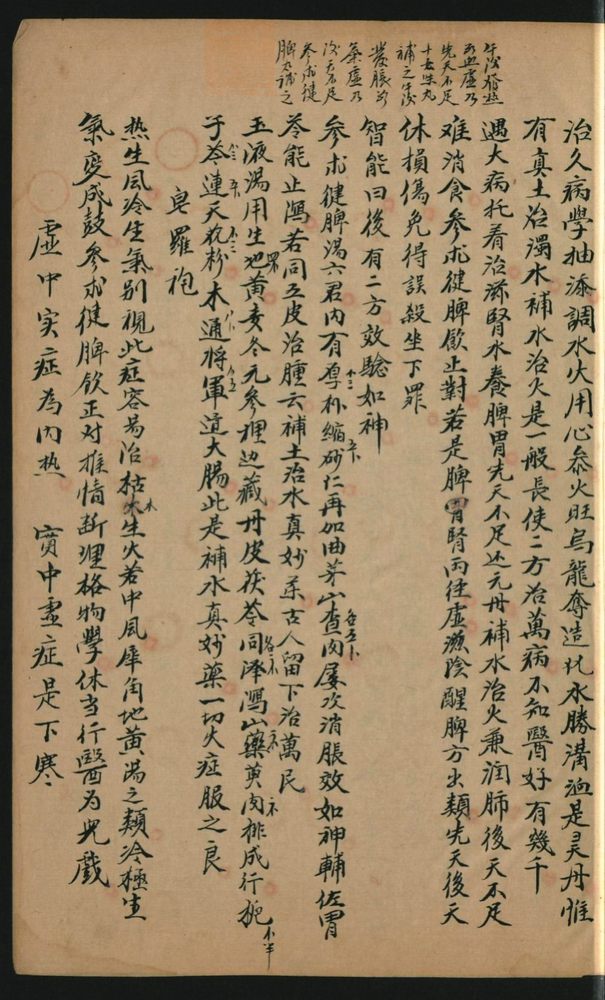 午後發熱
乃血虛乃
先天不足
十全味丸
補之午後
發脹前
氣虛乃
後天不足
參朮健
脾丸補之
治久病學抽添調水火用心參火旺烏龍奪造化水勝滿洫是灵丹惟
有真土治濁水補水治火是一般長使二方治萬病不知醫好有幾千
遇大病托着治源腎水養脾胃先天不足还元丹補水治火兼润肺後天不足
难消食參朮健脾飲止對若是脾胃腎丙往虛滋陰醒脾方出類先天後天
休損傷免得誤殺坐下罪
智能曰後有二方效驗如神
參朮健脾湯六君内有厚朴縮砂仁再加曲芽山查肉屡次消脹效如神輔佐胃
苓能止瀉若同五皮治腫云補土治水真妙柔古人留下治萬民
玉液湯用生地黄麦冬元參裡边藏丹皮茯苓同泽瀉山藥萸肉排成行枙
子芩連天花粉木通将軍送大腸此是補水真妙藥一切火症服之良
皂羅袍
热生風冷生氣别視此症容易治枯木生火若中風犀角地黄湯之類冷極生
氣变成鼓參朮健脾飲正对推情断理格物學休当行醫为兒戲
虛中实症為内热　實中虛症是下寒